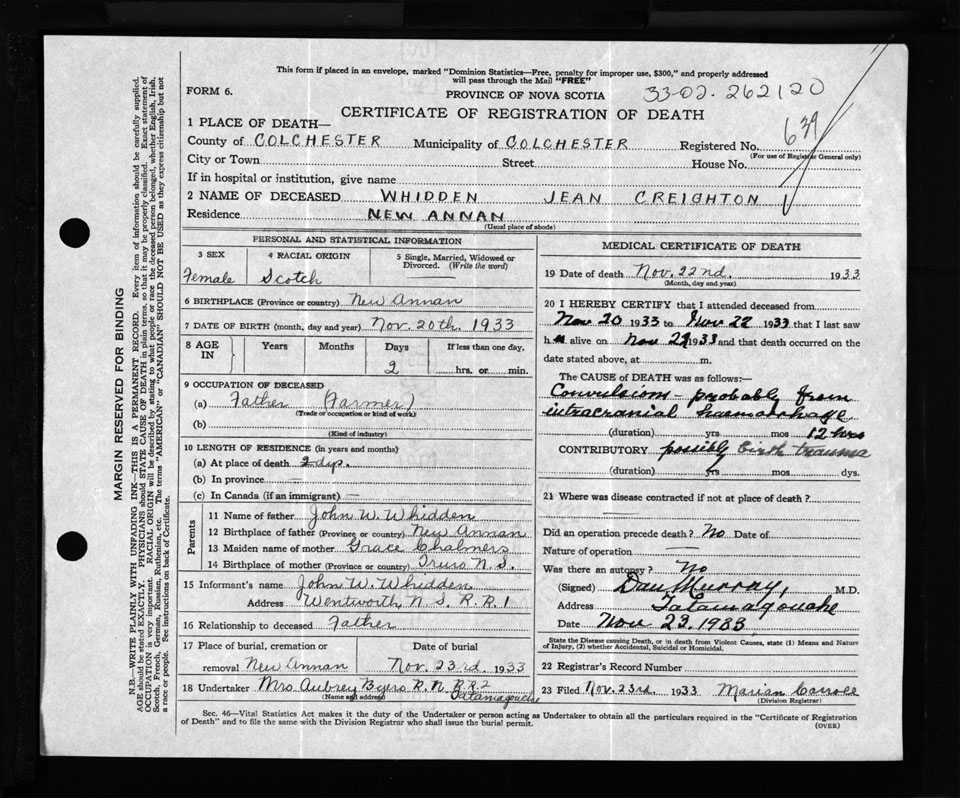 This form if placed in an envelope, marked "Dominion Statistics—Free, penalty for improper use, $300," and properly addressed
will pass through the Mail "FREE"
FORM 6.
PROVINCE OF NOVA SCOTIA
33-02-262120
CERTIFICATE OF REGISTRATION OF DEATH
639
1 PLACE OF DEATH—
County of COLCHESTER Municipality of COLCHESTER Registered No.
(For use of Registrar General only)
City or Town Street House No.
If in hospital or institution, give name
2 NAME OF DECEASED WHIDDEN JEAN CREIGHTON
Residence NEW ANNAN
(Usual place of abode)
PERSONAL AND STATISTICAL INFORMATION
3 SEX 4 RACIAL ORIGIN 5 Single, Married, Widowed or
Divorced. (Write the word)
Female Scotch
6 BIRTHPLACE (Province or country) New Annan
7 DATE OF BIRTH (month, day and year) Nov. 20th. 1933
8 AGE IN Years Months Days If less than one day,
2 hrs. or min.
9 OCCUPATION OF DECEASED
(a) Father (Farmer)
(Trade or occupation or kind of work)
(b)
(Kind of industry)
10 LENGTH OF RESIDENCE (in years and months)
(a) At place of death 2 dys.
(b) In province —
(c) In Canada (if an immigrant) —
Parents
11 Name of father John W. Whidden
12 Birthplace of father (Province or country) New Annan
13 Maiden name of mother Grace Chalmers
14 Birthplace of mother (Province or country) Truro N.S.
15 Informant's name John W. Whidden
Address Wentworth, N.S. R.R. 1
16 Relationship to deceased Father
17 Place of burial, cremation or Date of burial
removal New Annan Nov. 23rd. 1933
18 Undertaker Mrs Aubrey Byers R.N. R.R.2
(Name and address) Tatamagouche
MEDICAL CERTIFICATE OF DEATH
19 Date of death Nov. 22nd. 1933
(Month, day and year)
20 I HEREBY CERTIFY that I attended deceased from
Nov 20 1933 to Nov 22 1933 that I last saw
h alive on Nov 22 1933 and that death occurred on the
date stated above, at m.
The CAUSE of DEATH was as follows:—
Convulsions — probably from
intracranial haemorrhage
(duration) yrs mos 12 hrs
CONTRIBUTORY possibly birth trauma
(duration) yrs mos dys.
21 Where was disease contracted if not at place of death?
Did an operation precede death? No Date of
Nature of operation —
Was there an autopsy? No
(Signed) Dan Murray, M.D.
Address Tatamagouche
Date Nov 23. 1933
State the Disease causing Death, or in death from Violent Causes, state (1) Means and Nature
of Injury, (2) whether Accidental, Suicidal or Homicidal.
22 Registrar's Record Number
23 Filed Nov. 23rd. 1933 Marian
(Division Registrar)
Sec. 46—Vital Statistics Act makes it the duty of the Undertaker or person acting as Undertaker to obtain all the particulars required in the "Certificate of Registration
of Death" and to file the same with the Division Registrar who shall issue the burial permit.
(OVER)
MARGIN RESERVED FOR BINDING
N.B.—WRITE PLAINLY WITH UNFADING INK—THIS IS A PERMANENT RECORD. Every item of information should be carefully supplied.
AGE should be stated EXACTLY. PHYSICIANS should STATE CAUSE OF DEATH in plain terms, so that it may be properly classified. Exact statement of
OCCUPATION is very important. RACIAL ORIGIN will be described by stating to what people or race the deceased person belonged, whether English, Irish,
Scotch, French, German, Russian, Ruthenian, etc. The terms "AMERICAN" or "CANADIAN" SHOULD NOT BE USED as they express citizenship but not
a race or people. See instructions on back of Certificate.